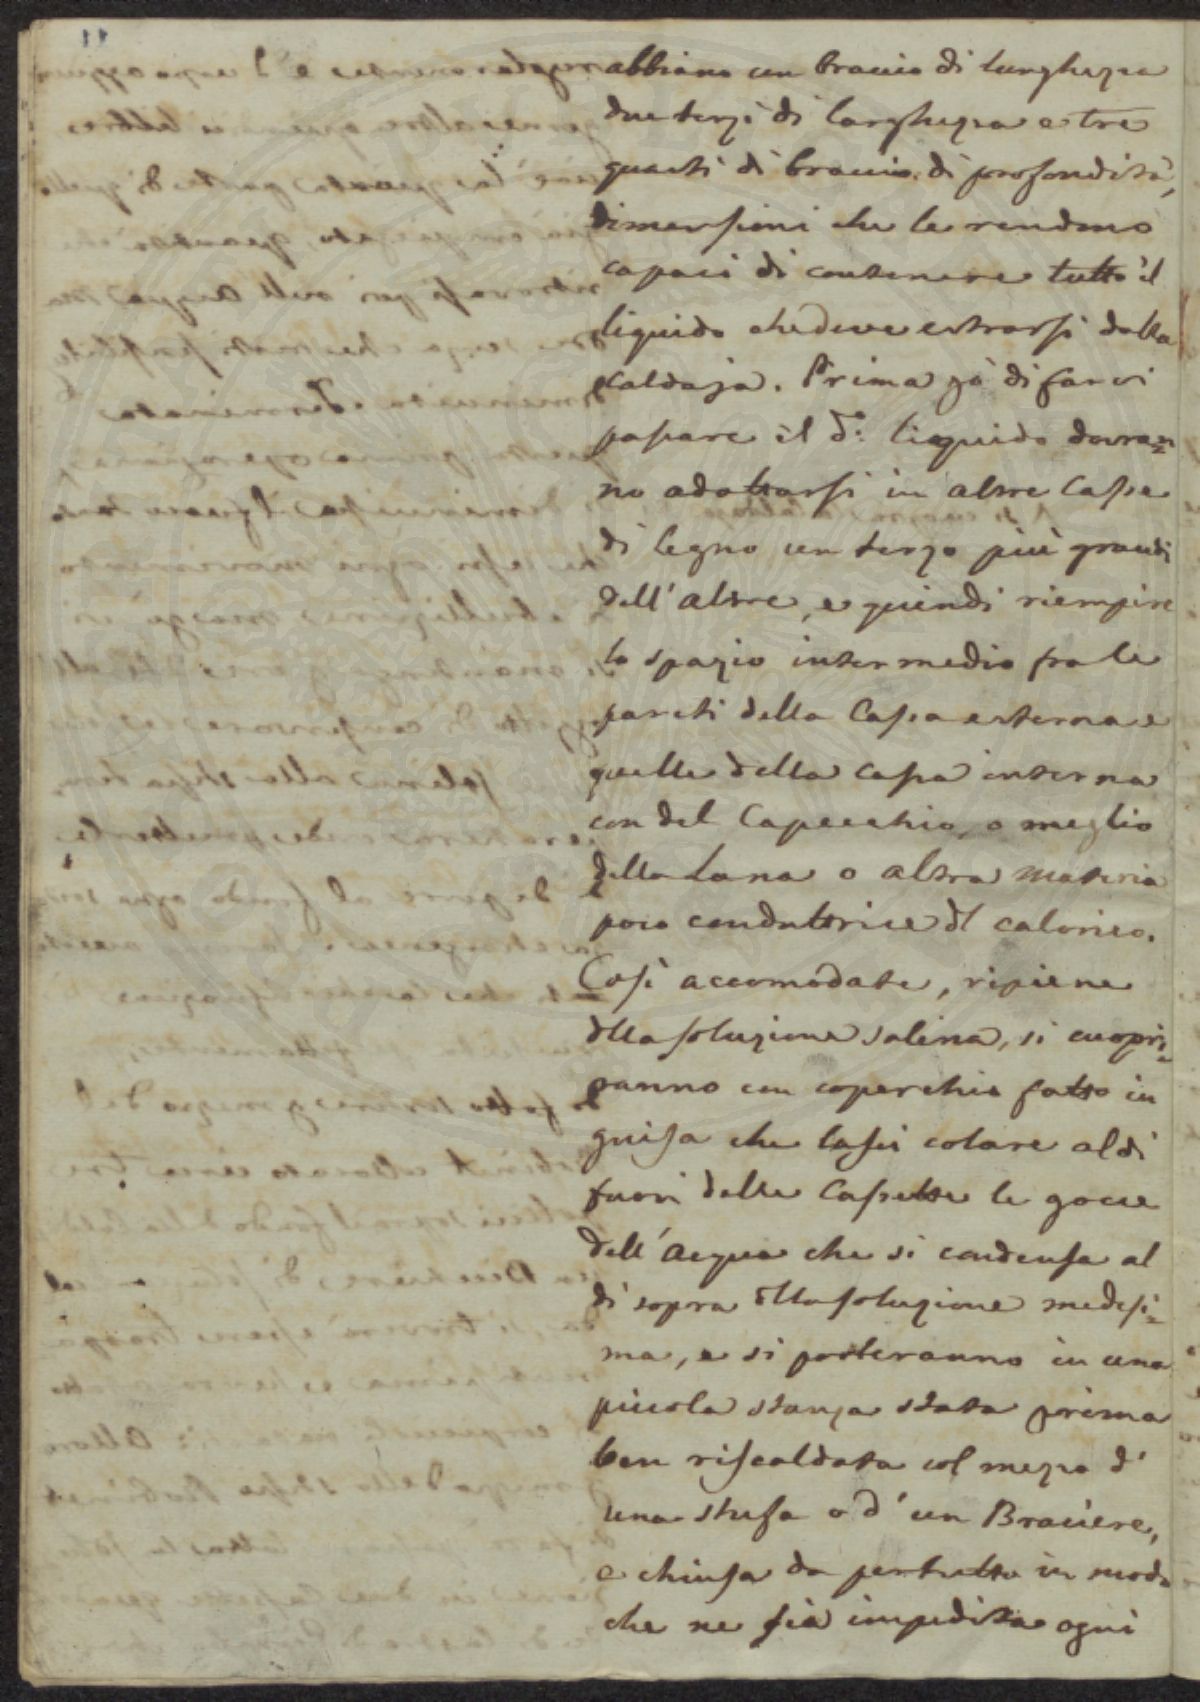 abbiano un braccio di lunghezza
due terzi di larghezza e tre
quarti di braccio di profondità,
dimensioni che le rendono
capaci di contenere tutto il
liquido che deve estrarsi dalla
caldaja. Prima pò di farvi
passare il do: liquido dovran=
no adattarsi in altre Casse
di legno un terzo più grandi
dell'altre, e quindi riempire
lo spazio intermedio fra le
pareti della Cassa esterna e
quelle della cassa interna
con del Capecchio, o meglio
della Lana o altra materia
poco conduttrice dl calorico.
Così accomodate, ripiene
dlla soluzione salina, si cuopri=
ranno con coperchio fatto in
guisa che lasci colare al di
fuori delle Cassette le gocce
dell'Acqua che si condensa al
di sopra dlla soluzione medesi=
ma, e si porteranno in una
piccola stanza stata prima
ben riscaldata col mezzo d'
una stufa o d'un Braciere,
e chiusa da pertutto in modo
che ne sia impedita ogni